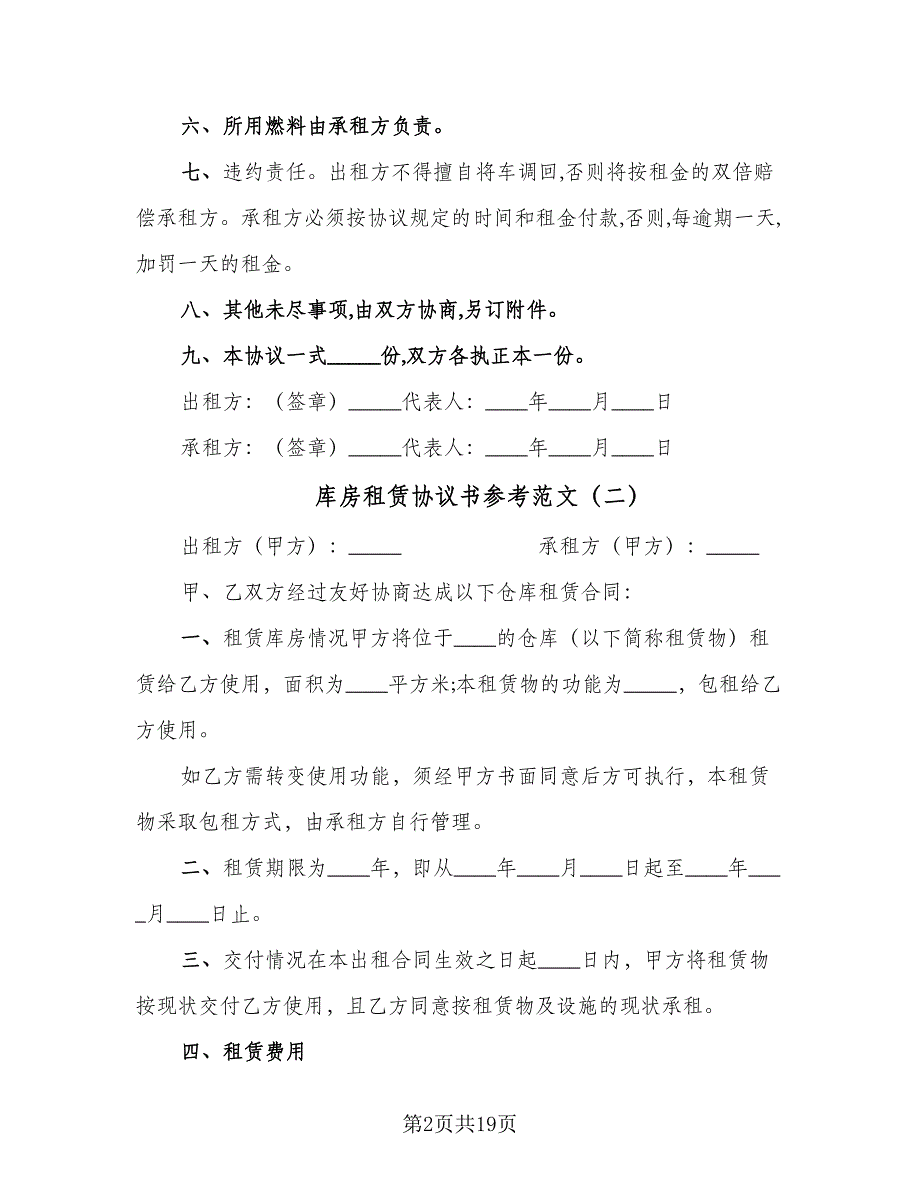 六、所用燃料由承租方负责。
七、违约责任。出租方不得擅自将车调回,否则将按租金的双倍赔
偿承租方。承租方必须按协议规定的时间和租金付款,否则,每逾期一天,
加罚一天的租金。
八、其他未尽事项,由双方协商,另订附件。
九、本协议一式_____份,双方各执正本一份。
出租方：（签章）_____代表人：____年____月____日
承租方：（签章）_____代表人：____年____月____日
库房租赁协议书参考范文（二）
出租方（甲方）：_____ 承租方（甲方）：_____
甲、乙双方经过友好协商达成以下仓库租赁合同：
一、租赁库房情况甲方将位于____的仓库（以下简称租赁物）租
赁给乙方使用，面积为____平方米;本租赁物的功能为_____，包租给乙
方使用。
如乙方需转变使用功能，须经甲方书面同意后方可执行，本租赁
物采取包租方式，由承租方自行管理。
二、租赁期限为____年，即从____年____月____日起至____年___
_月____日止。
三、交付情况在本出租合同生效之日起____日内，甲方将租赁物
按现状交付乙方使用，且乙方同意按租赁物及设施的现状承租。
四、租赁费用
第2页共19页